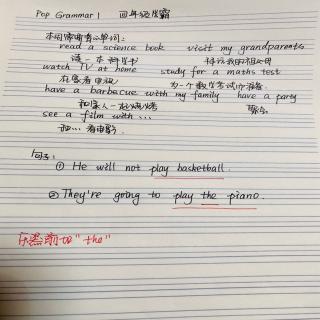 Pop Grammar 1 四年级学霸
本周需要背的单词:
read a science book visit my grandparents
读一本科学书 拜访我的祖父母
watch TV at home study for a maths test
在家看电视 为一个数学考试而准备
have a barbecue with my family have a party
和家人一起烧烤 聚会
see a film with ...
和... 看电影.
句子:
① He will not play basketball.
② They're going to play the piano.
乐器前加"the"